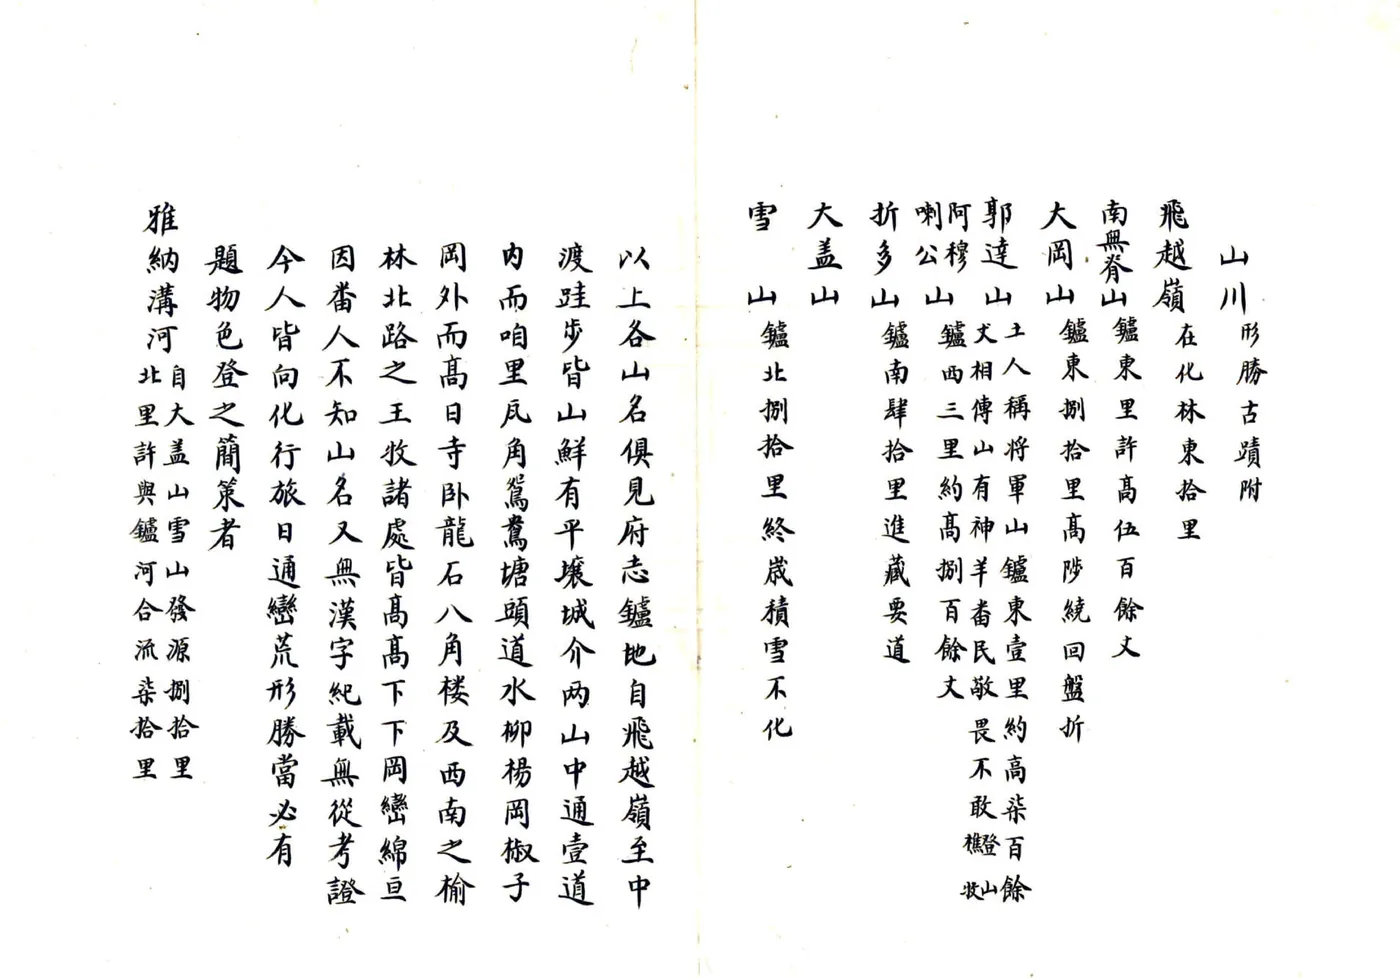 山川形勝古蹟附
飛越嶺在化林東拾里
南無脊山鑪東里許高伍百餘丈
大岡山鑪東捌拾里高陟繞回盤折
郭達山土人稱將軍山鑪東壹里約高柒百餘
丈相傳山有神羊畨民敬畏不敢登山樵牧
阿穆喇公山鑪西三里約高捌百餘丈
折多山鑪南肆拾里進藏要道
大盖山
雪山鑪北捌拾里終崴積雪不化
以上各山名俱見府志鑪地自飛越嶺至中
渡跬步皆山鮮有平壤城介两山中通壹道
内而咱里瓦角鴛鴦塘頭道水柳楊岡椒子
岡外而高日寺卧龍石八角楼及西南之榆
林北路之王牧諸處皆高高下下岡巒綿亘
因畨人不知山名又無漢字紀載無從考證
今人皆向化行旅日通巒荒形勝當必有
題物色登之簡策者
雅納溝河自大盖山雪山發源捌拾里
北里許與鑪河合流柒拾里